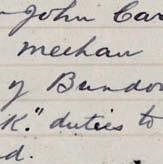 John Car
mechan
of Bundo
K." duties to
d.